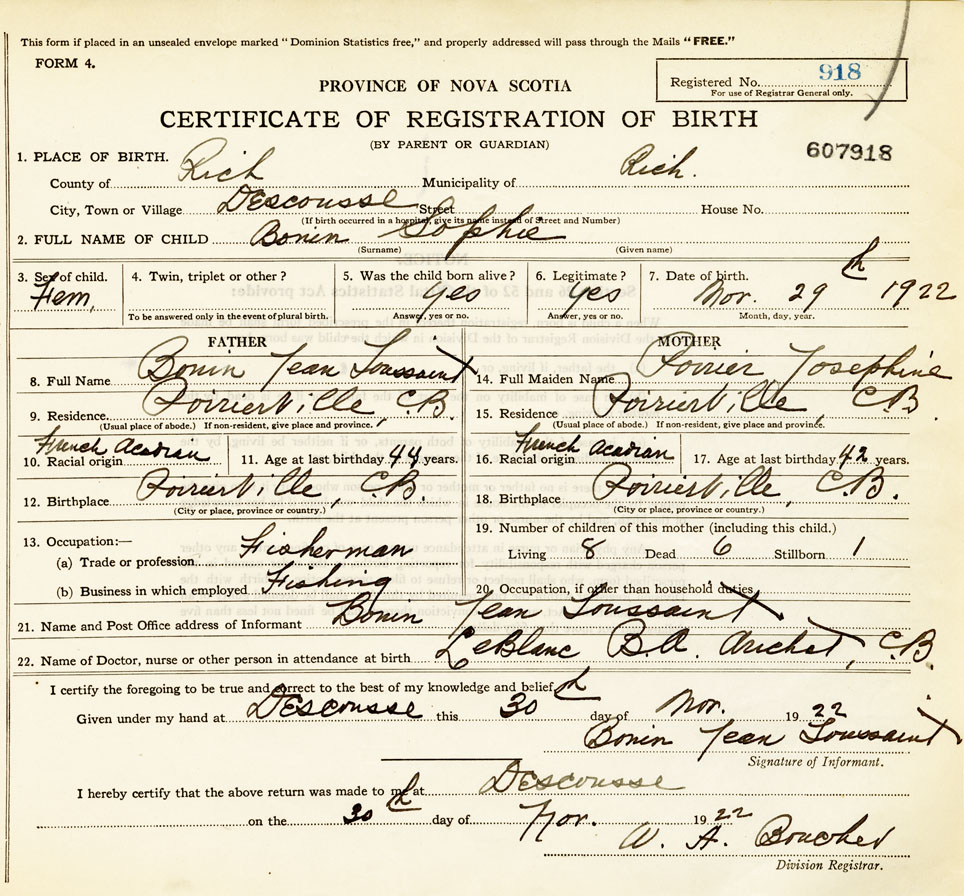 This form if placed in an unsealed envelope marked "Dominion Statistics free," and properly addressed will pass through the Mails "FREE."
FORM 4.
PROVINCE OF NOVA SCOTIA
Registered No. 918
For use of Registrar General only.
CERTIFICATE OF REGISTRATION OF BIRTH
(BY PARENT OR GUARDIAN)
607918
1. PLACE OF BIRTH.
County of Rich Municipality of Rich.
City, Town or Village Descousse Street House No.
(If birth occurred in a hospital, give its name instead of Street and Number)
2. FULL NAME OF CHILD Bonin Sophie
(Surname) (Given name)
3. Sex of child. 4. Twin, triplet or other? 5. Was the child born alive? 6. Legitimate? 7. Date of birth.
Fem, Yes Yes Nov. 29th 1922
To be answered only in the event of plural birth. Answer, yes or no. Answer, yes or no. Month, day, year.
FATHER MOTHER
8. Full Name Bonin Jean Toussaint 14. Full Maiden Name Poirier Josephine
9. Residence Poirierville, C.B. 15. Residence Poirierville, C.B.
(Usual place of abode.) If non-resident, give place and province. (Usual place of abode.) If non-resident, give place and province.
10. Racial origin French Acadian 11. Age at last birthday 44 years. 16. Racial origin French Acadian 17. Age at last birthday 42 years.
12. Birthplace Poirierville, C.B. 18. Birthplace Poirierville, C.B.
(City or place, province or country.) (City or place, province or country.)
13. Occupation:— 19. Number of children of this mother (including this child.)
(a) Trade or profession Fisherman Living 8 Dead 6 Stillborn 1
(b) Business in which employed Fishing 20. Occupation, if other than household duties
21. Name and Post Office address of Informant Bonin Jean Toussaint
22. Name of Doctor, nurse or other person in attendance at birth LeBlanc B.A. Arichat, C.B.
I certify the foregoing to be true and correct to the best of my knowledge and belief.
Given under my hand at Descousse this 30th day of Nov. 1922
Bonin Jean Toussaint
Signature of Informant.
I hereby certify that the above return was made to me at Descousse
on the 30th day of Nov. 1922
W. A. Boucher
Division Registrar.